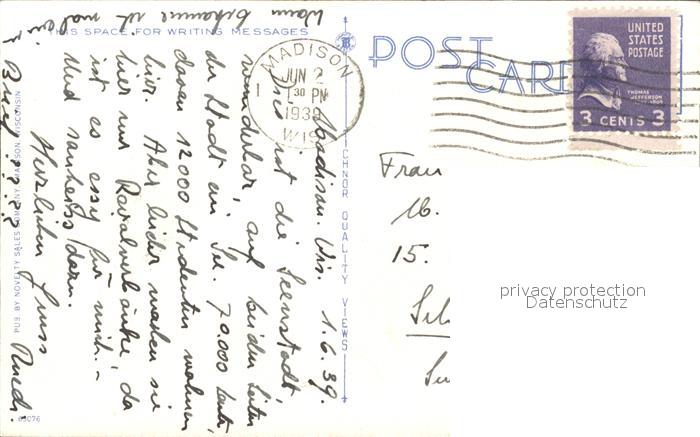 THIS SPACE FOR WRITING MESSAGES
POST CARD
MADISON
JUN 2
1 30 PM
1939
WIS.
UNITED
STATES
POSTAGE
THOMAS
JEFFERSON
3 CENTS 3
Madison. Wis. 1.6.39.
Dies ist die Seenstadt,
wunderbar, auf beiden Seiten
der Stadt ein See. 70.000 Leute,
davon 12000 Studenten wohnen
hier. Aber leider machen sie
hier nur Radialverläufe, da
ist es essy für mich.-
Und sauheiss dazu.
Herzlichen Gruss
Ruedi.
Wann bekomme ich mal ein
Brief ????
Frau
M.
15.
PUB. BY NOVELTY SALES COMPANY, MADISON, WISCONSIN
TICHNOR QUALITY VIEWS
65076
privacy protection
Datenschutz